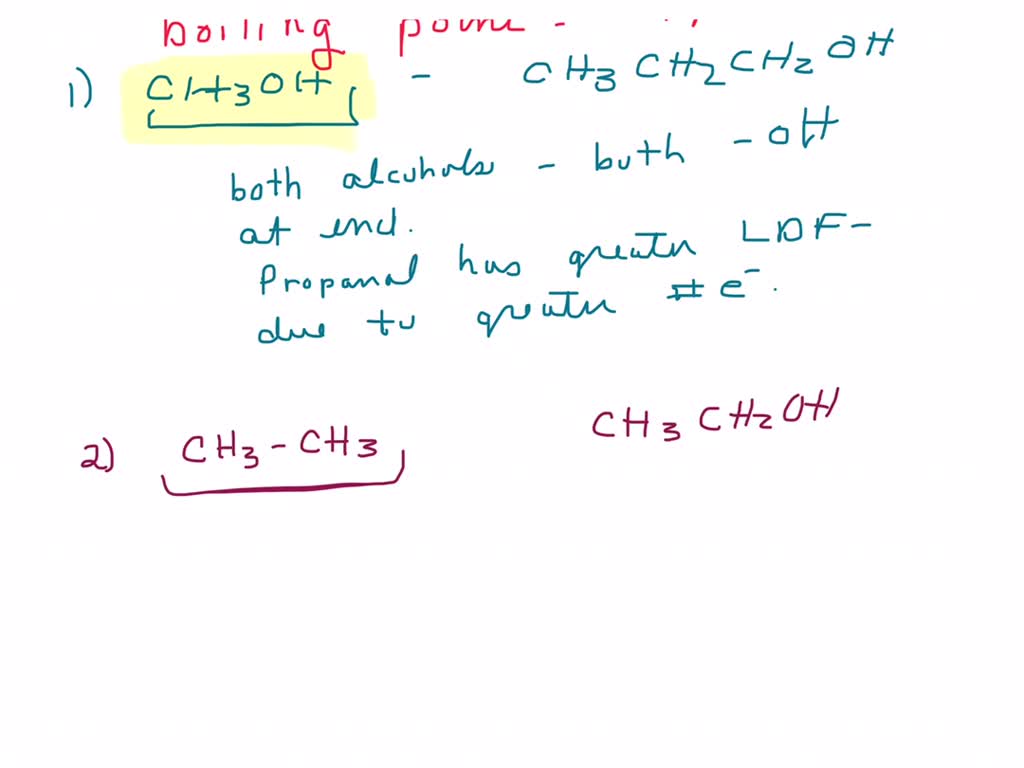 Boiling point -
1) CH3OH - CH3CH2CH2OH
both alcohols - both - OH
at end.
Propanal has greater LDF-
due to greater # e-.
2) CH3-CH3 CH3CH2OH